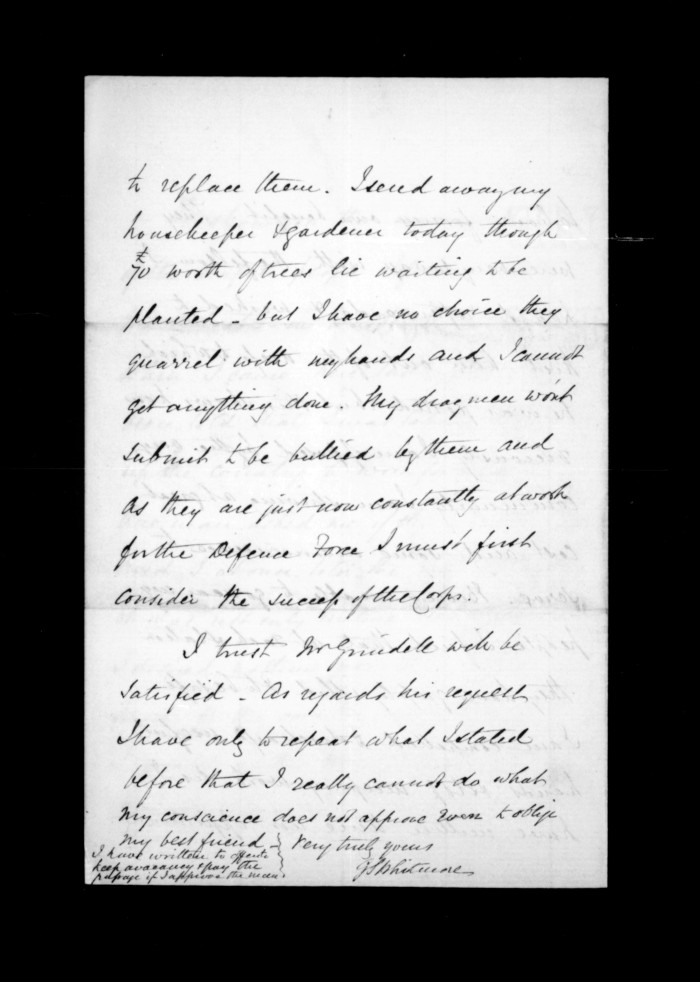 to replace them. I send away my
housekeeper & gardener today though
£70 worth of trees lie waiting to be
planted - but I have no choice they
quarrel with my hands and I cannot
get anything done. My draymen wont
submit to be bullied by them and
as they are just now constantly at work
for the Defence Force I must first
consider the success of the Corps.
I trust Mr Grindell will be
satisfied - As regards his request
I have only to repeat what I stated
before that I really cannot do what
my conscience does not approve even to oblige
my best friend - Very truly yours
GSWhitmore
I have written to
keep a vacancy & pay the
passage if I approve the man.